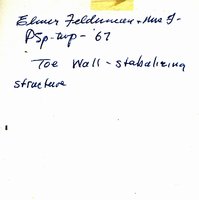 Elmer Feldman
PSp-twp- '67
Toe Wall - stabalizing
structure